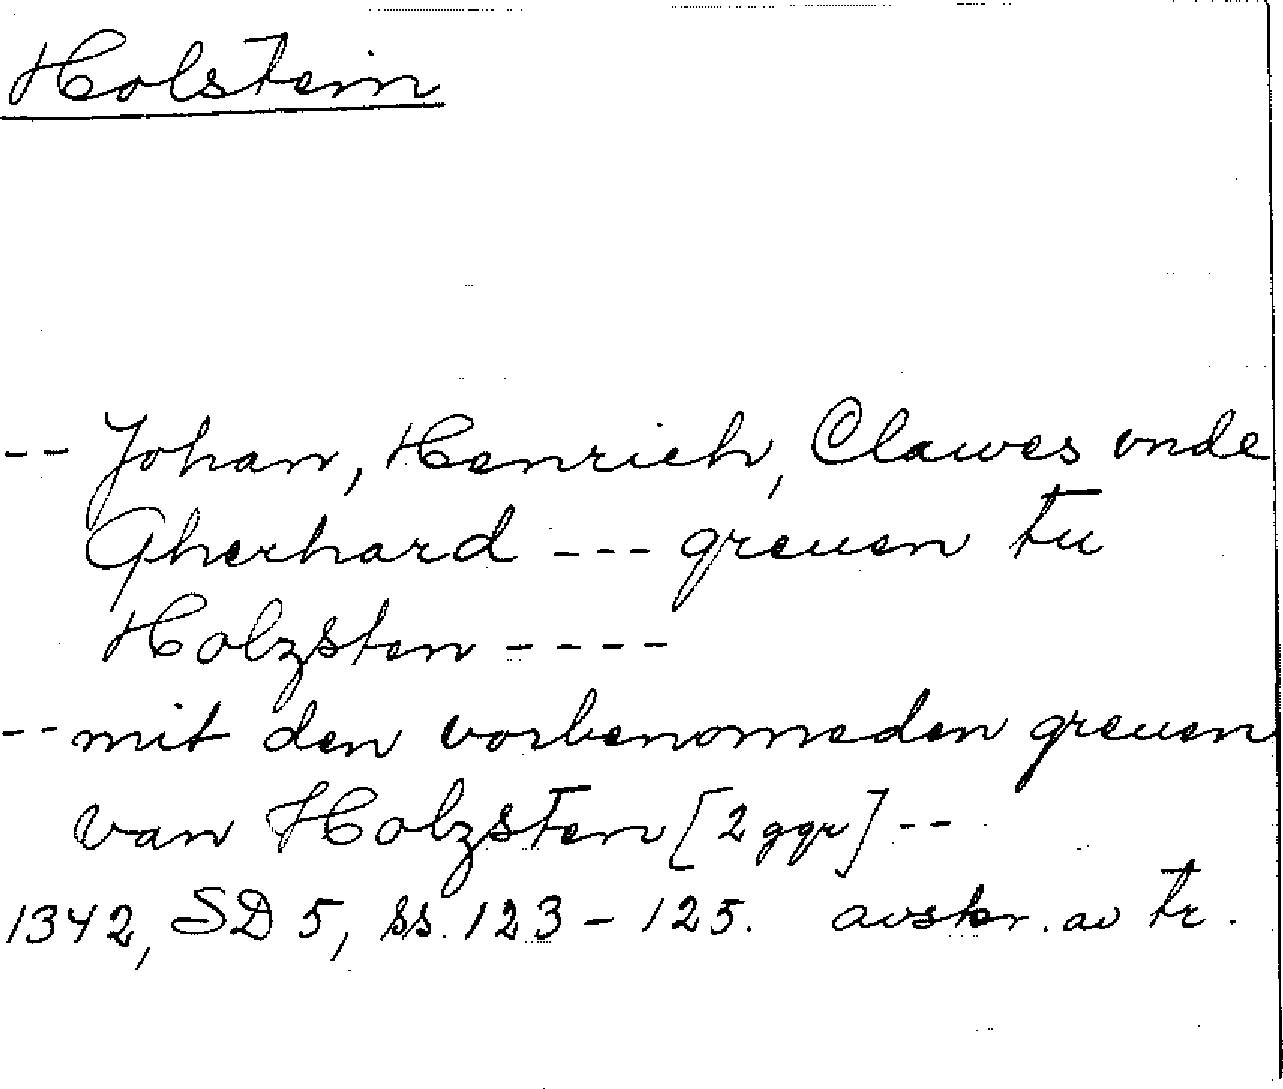 Holstein
-- Johan, Henrich, Clawes vnde
Gherhard --- greuen tu
Holzsten ----
-- mit den vorbenomeden greuen
van Holzsten [2 ggr] --
1342, SD 5, ss. 123-125. avskr. av tr.